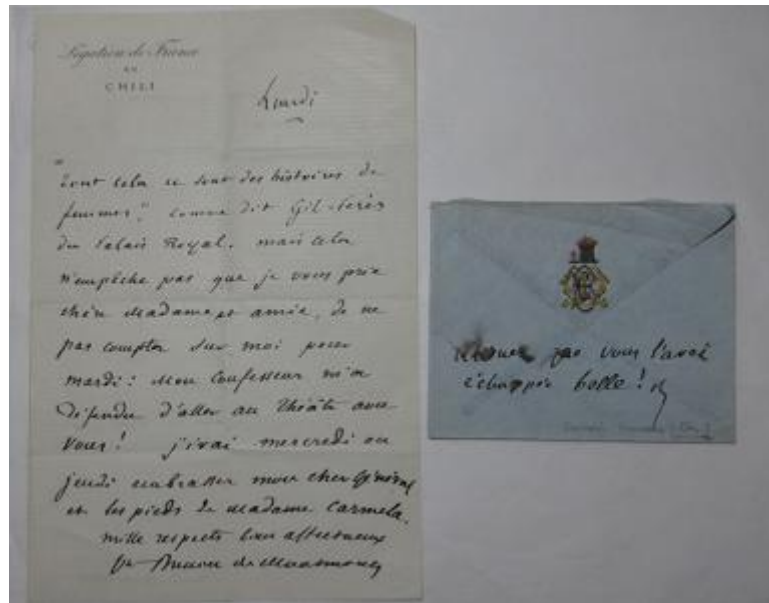 Légation de France
AU
CHILI
Lundi
"Tout cela ce sont des histoires de
femmes", comme dit Gil-Perès
du Palais Royal. mais cela
n'empêche pas que je vous prie
chère Madame et amie, de ne
pas compter sur moi pour
mardi: Mon Confesseur m'a
défendu d'aller au Théâtre avec
Vous! j'irai mercredi ou
jeudi embrasser mon cher Général
et les pieds de Madame Carmela.
mille respects bien affectueux
Bn
avouez que vous l'avez
échappée belle!